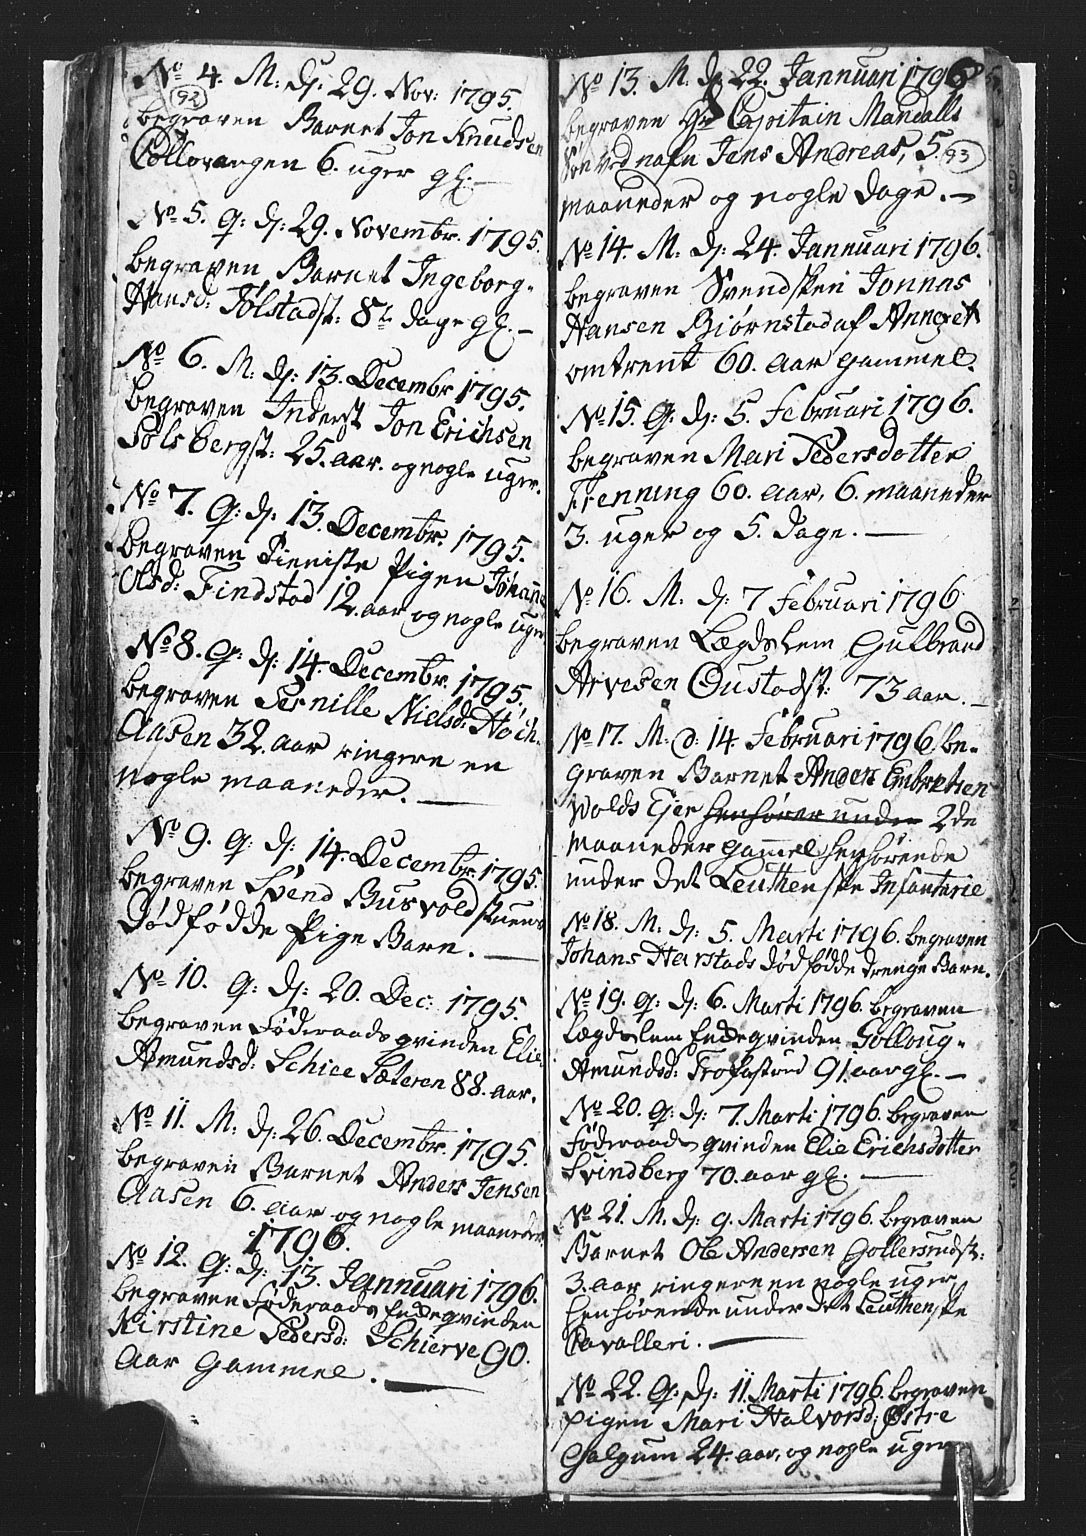 No 4. M: d: 29. Nov: 1795.
92
begraven Barnet Jon Knudsen
Collovangen 6. uger gl. —
No 5. Q: d: 29. Novembr. 1795.
begraven Barnet Ingeborg
Hansd: Tølstadst: 8te dage gl. —
No 6. M. d: 13. Decembr 1795.
begraven Inderst Jon Erichsen
Sølsbergst: 25. aar. og nogle uger.
No 7. Q: d: 13. Decembr. 1795.
begraven Pigen Johanne
Olsd: Findstad 12. aar og nogle uger
No 8. Q: d: 14. Decembr. 1795.
begraven Pernille Nielsd:
Aasen 32. aar ringere en
nogle maaneder. —
No 9. Q: d: 14. Decembr. 1795.
begraven Svend Busvoldstuens
Dødfødde Pige Barn. —
No 10. Q: d: 20. Dec: 1795.
begraven Føderaads qvinden Elie
Asmundsd: Schiee Sæteren 88. aar.
No 11. M: d: 26. Decembr. 1795.
begraven Barnet Anders Jensen
Aasen 6. aar og nogle maaneder.
1796.
No 12. Q: d: 13. Jannuari 1796.
begraven Føderaads Enkeqvinden
Kirstine Pedersd: Schierve 90.
Aar Gammel. —
No 13. M. d: 22. Jannuari 1796
begraven Hr Capitain Mandalls
Søn ved nafn Jens Andreas, 5.
93
maaneder og nogle dage. —
No 14. M. d: 24. Jannuari 1796.
begraven Svendsken Jonnas
Hansen Biørnstad af Annexet
omtrent 60. aar gammel.
No 15. Q. d: 5. Februari 1796.
begraven Mari Pedersdotter
Frenning 60. aar, 6. maaneder
3. uger og 5. Dage. —
No 16. M. d: 7 Februari 1796
begraven Lægdslem Gulbrand
Arvesen Oustadst: 73 aar. —
No 17. M. d: 14. Februari 1796. be-
graven Barnet Anders Embretsen
Wolds Ejer henhører under 2de
maaneder gammel henhørende
under det Leuthenske Infantarie
No 18. M. d: 5. Marti 1796. begraven
Johans Harstads dødfødde drenge Barn.
No 19. Q: d: 6. Marti 1796. begraven
Lægdslem Enkeqvinden Golloug
Amundsd: 91. aar gl. —
No 20. Q: d: 7. Marti 1796. begraven
Føderaads qvinden Elie Erichsdotter
Svindberg 70. aar gl. —
No 21. M. d: 9. Marti 1796. begraven
Barnet Ole Andersen Gollersrudst:
3. aar ringere en nogle uger
henhørende under det Leuthenske
Cavalleri. —
No 22. Q: d: 11. Marti 1796. begraven
pigen Mari Halvorsd: Østre
Galgum 24. aar, og nogle uger